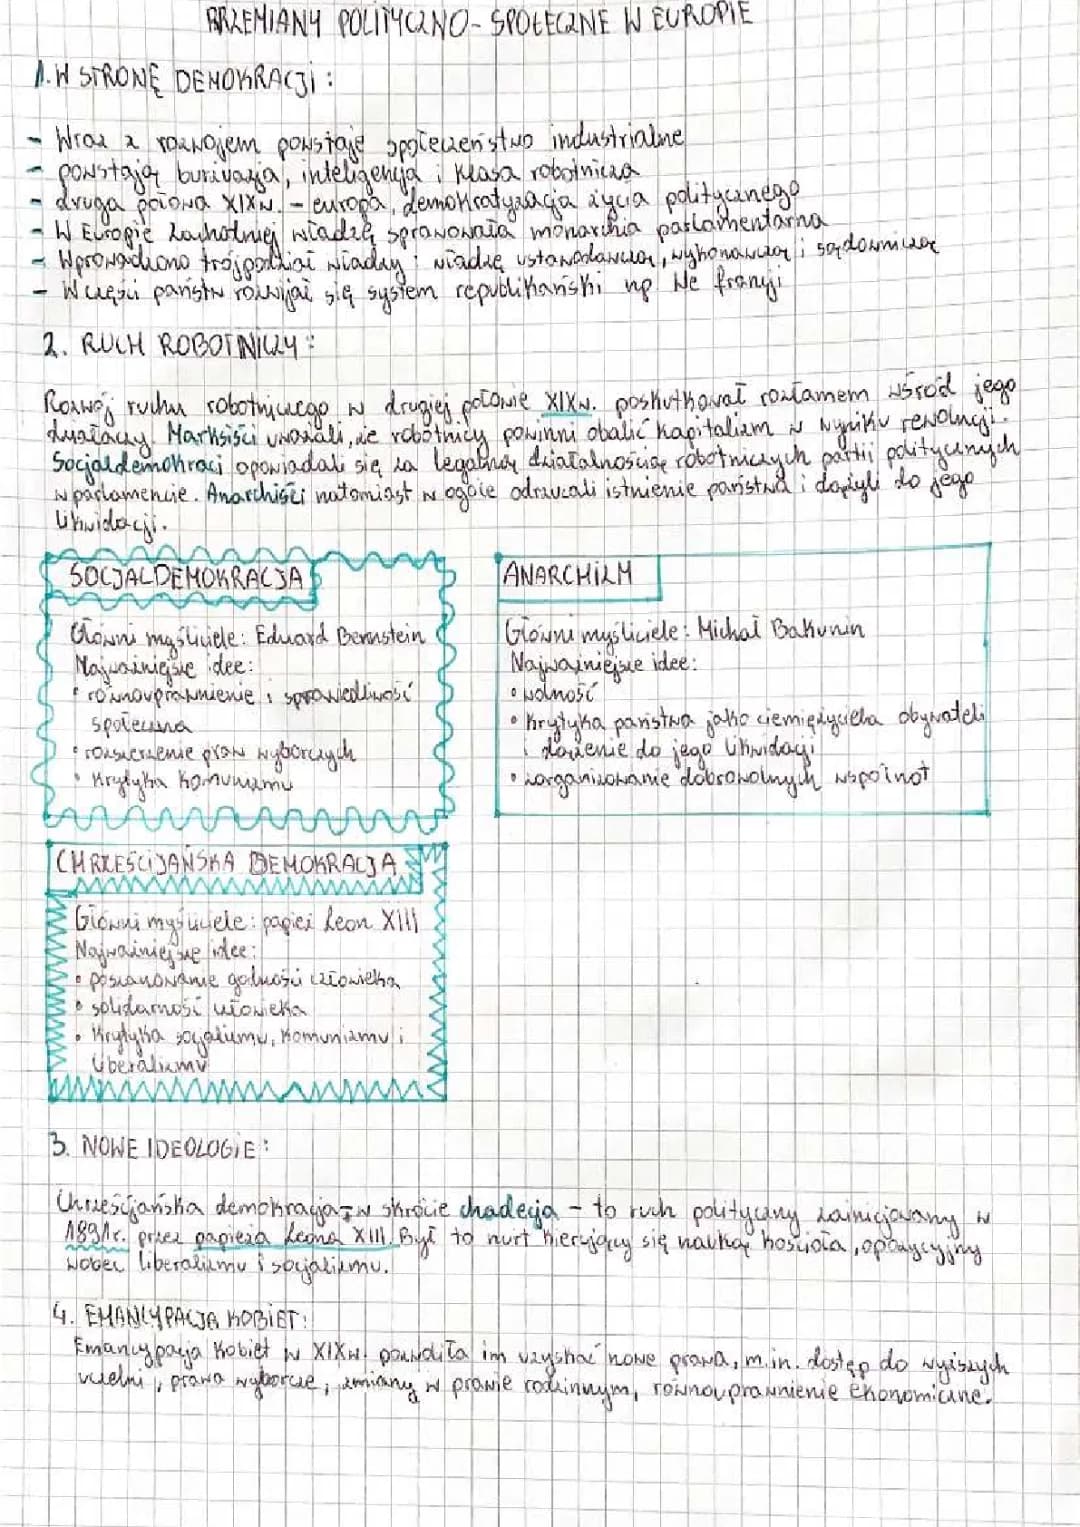 PRZEMIANY POLITYCZNO - SPOŁECZNE W EUROPIE
1. W STRONĘ DEMOKRACJI :
- Wraz z rozwojem powstaję społeczeństwo industrialne
- powstają burżuazja, inteligencja i klasa robotnicza
- druga połowa XIXw. - europa, demokratyzacja życia politycznego
- W Europie Zachodniej władzę sprawowała monarchia parlamentarna
- Wprowadzono trójpodział władzy : władzę ustawodawczą, wykonawczą i sądowniczą
- W części państw rozwijał się system republikański np. We francji
2. RUCH ROBOTNICZY :
Rozwój ruchu robotniczego w drugiej połowie XIXw. poskutkował rozłamem wśród jego
działaczy. Marksiści uważali, że robotnicy powinni obalić kapitalizm w wyniku rewolucji.
Socjaldemokraci opowiadali się za legalną działalnością robotniczych partii politycznych
w parlamencie. Anarchiści natomiast w ogóle odrzucali istnienie państwa i dążyli do jego
likwidacji.
SOCJALDEMOKRACJA
Główni myśliciele: Eduard Bernstein
Najważniejsze idee:
• równouprawnienie i sprawiedliwość
społeczna
• rozszerzenie praw wyborczych
• Krytyka komunizmu
ANARCHIZM
Główni myśliciele: Michał Bakunin
Najważniejsze idee:
• wolność
• krytyka państwa jako ciemiężyciela obywateli
i dążenie do jego likwidacji
• zorganizowanie dobrowolnych wspólnot
CHRZEŚCIJAŃSKA DEMOKRACJA
Główni myśliciele: papież Leon XIII
Najważniejsze idee:
• poszanowanie godności człowieka
• solidarność człowieka
• Krytyka socjalizmu, komunizmu i
liberalizmu
3. NOWE IDEOLOGIE :
Chrześcijańska demokracja, w skrócie chadecja - to ruch polityczny zainicjowany w
1891r. przez papieża Leona XIII. Był to nurt kierujący się nauką kościoła, opozycyjny
wobec liberalizmu i socjalizmu.
4. EMANCYPACJA KOBIET :
Emancypacja kobiet w XIXw. pozwoliła im uzyskać nowe prawa, m.in. dostęp do wyższych
uczelni, prawa wyborcze, zmiany w prawie rodzinnym, równouprawnienie ekonomiczne.